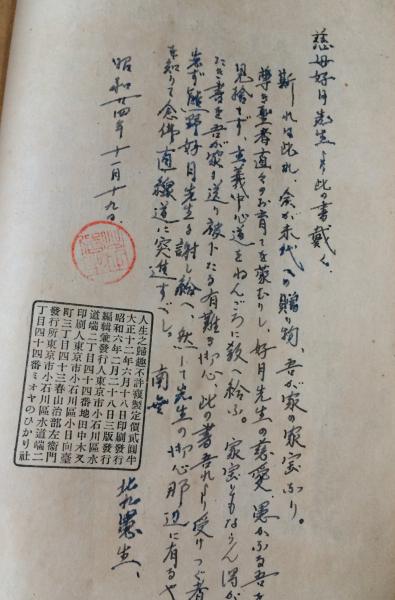 慈母好月先生より此の書戴く、
斯れは此れ、余が末代への贈り物、吾が家の家宝なり。
尊き聖者直々のお育てを蒙むりし、好月先生の慈愛、愚かなる吾を
見捨てず、主義中心道をねんごろに教へ給ふ。家宝ともならん得が
たき書を吾が家に送り被下たる有難き御心、此の書吾れより受けつぐ者
先ず熊野好月先生を謝し給へ、然して先生の御心那辺に有るや
を知りて念佛直線道に突進すべし。南無
昭和廿四年十一月十九日
人生之歸趣不許複製定價貳圓半
大正十二年六月十八日印刷發行
昭和六年二月二十八日三版發行
編輯兼發行人東京市小石川區水
道端二丁目四十四番地田中木叉
印刷人東京市小石川區小日向臺
町三丁目四十三春山治部左衞門
發行所東京市小石川區水道端二
丁目四十四番ミオヤのひかり社